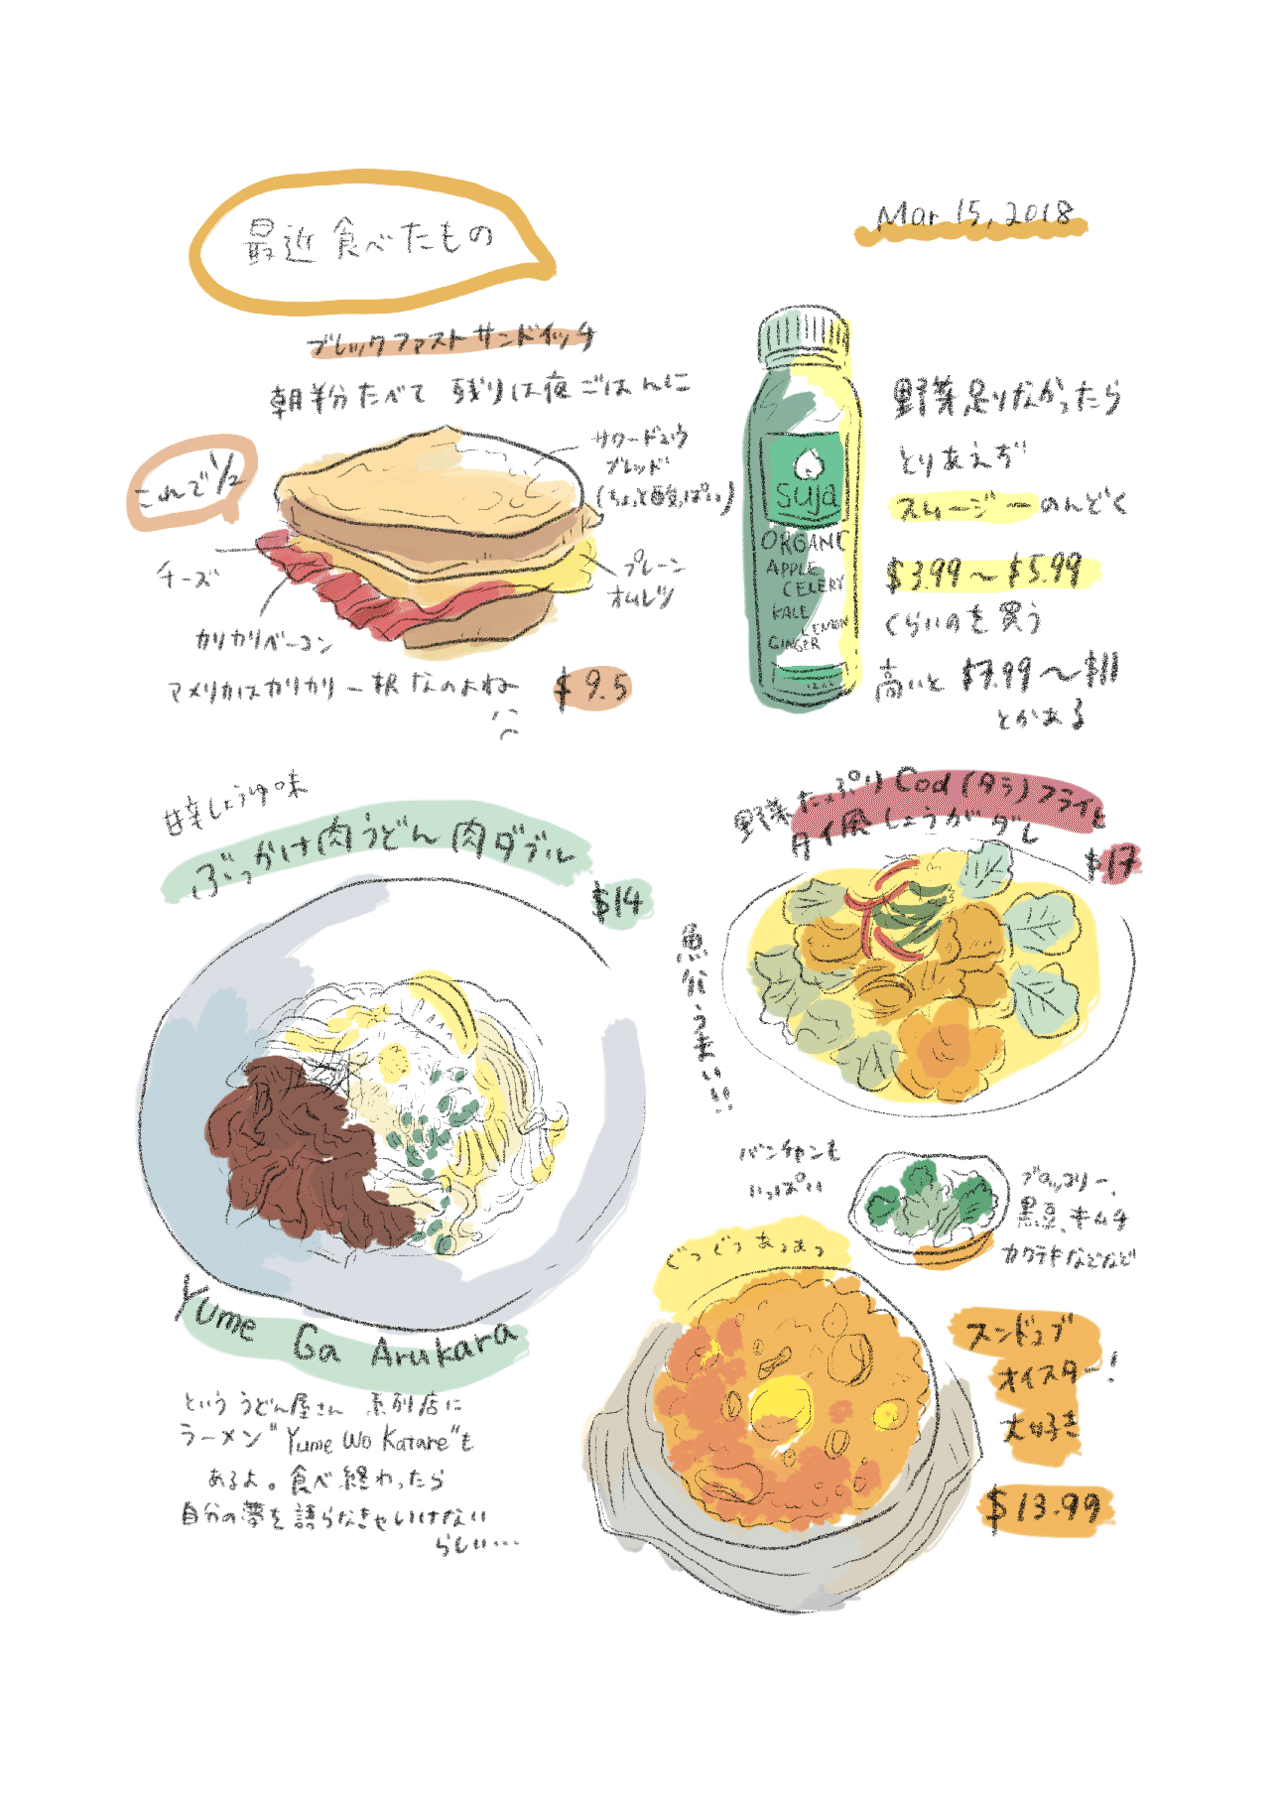 最近食べたもの
Mar 15, 2018
ブレックファストサンドイッチ
朝半分たべて 残りは夜ごはんに
これで1/2
サワードゥウ
ブレッド
(ちょっと酸っぱい)
チーズ
プレーン
オムレツ
カリカリベーコン
アメリカはカリカリ一択なのよね
$9.5
suja
ORGANIC
APPLE
CELERY
KALE
LEMON
GINGER
野菜足りなかったら
とりあえず
スムージーのんどく
$3.99〜$5.99
くらいのを買う
高いと $7.99〜$11
とかある
甘辛しょうゆ味
ぶっかけ肉うどん 肉ダブル
$14
Yume Ga Arukara
といううどん屋さん 系列店に
ラーメン"Yume Wo Katare"も
あるよ。食べ終わったら
自分の夢を語らなきゃいけない
らしい…
野菜たっぷり Cod(タラ)フライと
タイ風しょうがダレ
$17
魚がうまい!!
バンチャンも
いっぱい
ブロッコリー、
黒豆、キムチ
カクテキなどなど
ぐつぐつあつあつ
スンドゥブ
オイスター!
大好き
$13.99